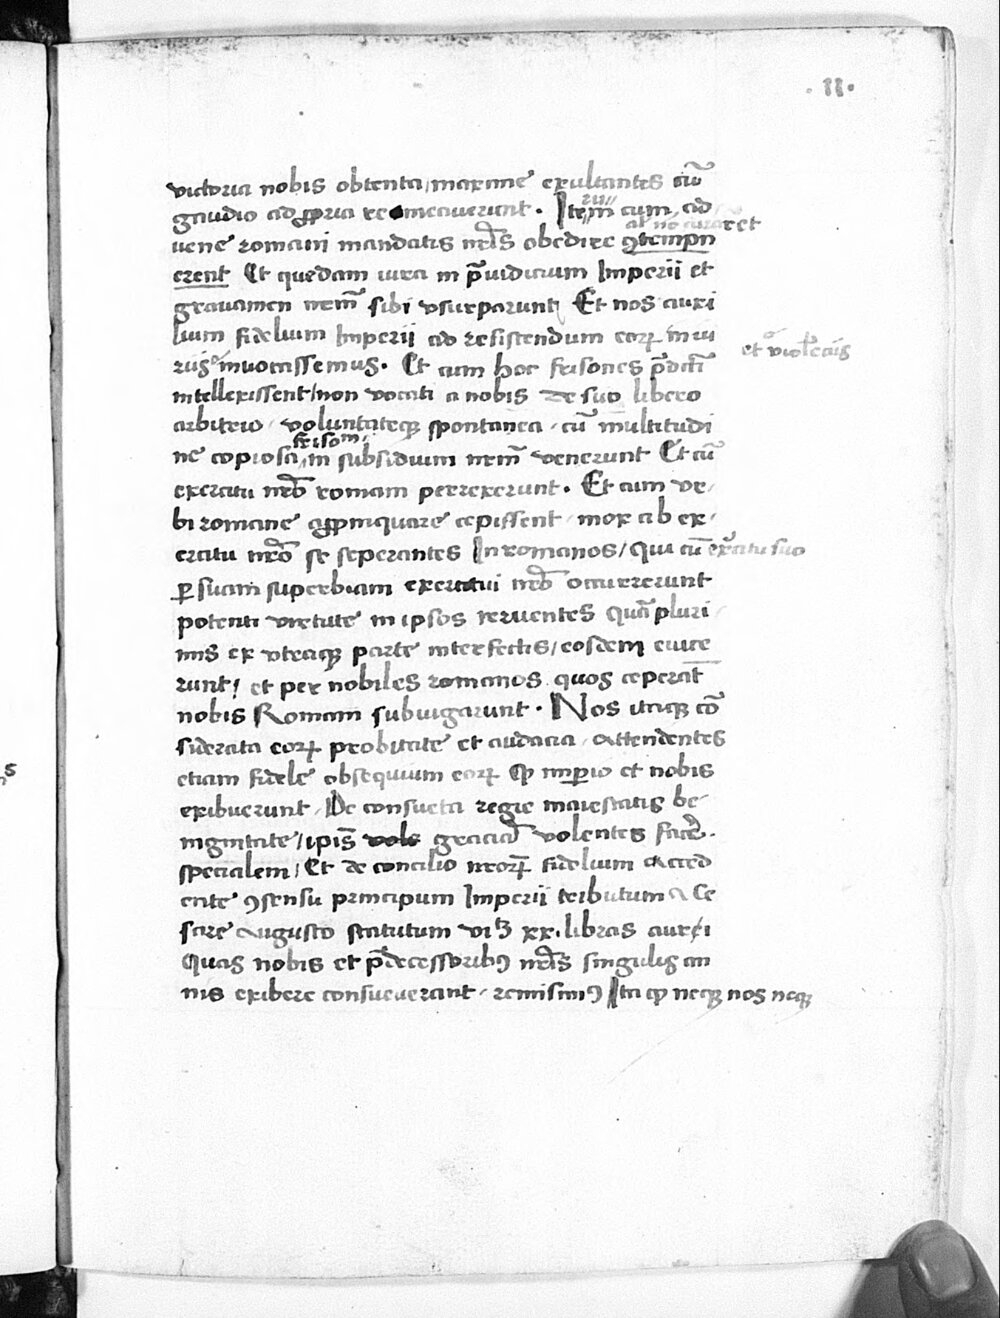 ·II·
victoria nobis obtenta / maxime exultantes cū
gaudio ad ꝓpria remeaverunt · Itē cum ad
al' nō
uene romani mandatis nrīs obedire ꝯtempn
erent Et quedam iura in p̄iudicium Imperii et
gravamen nrm̄ sibi vsurparunt Et nos auxi
lium fidelium Imperii ad resistendum eorꝝ iniu
riis invocassemus · Et cum hoc frisones p̄dcī
et violeciis
intellexissent / non vocati a nobis de suo libero
arbitrio voluntateqꝫ spontanea cū multitudi
frisonū
ne copiosa in subsidium nrm̄ venerunt Et cū
exercitu nrō romam perrexerunt · Et cum vr
bi romane aꝓpinquare cepissent mox ab ex
ercitu nrō se seperantes In romanos / qui cū exercitu suo
ꝑ suam superbiam exercitui nrō occurrerunt
potenti virtute in ipsos irruentes quā pluri
mis ex vtraqꝫ parte interfectis / eosdem euice
runt / et per nobiles romanos quos ceperāt
nobis Romam subiugarunt · Nos itaqꝫ cō
siderata eorꝝ probitate et audacia attendentes
etiam fidele obsequium eorꝝ qꝫ imꝑio et nobis
exibuerunt De consueta regie maiestatis be
nignitate / ipīs graciā volentes facē
specialem / Et de concilio nrorꝝ fidelium Acced
ente ꝯsensu principum Imperii tributum a Ce
sare Augusto statutum viꝫ xx libras auri
Quas nobis et p̄decessoribꝰ nrīs singulis an
nis exibere consueverant remisimꝰ Ita qꝫ neqꝫ nos neqꝫ